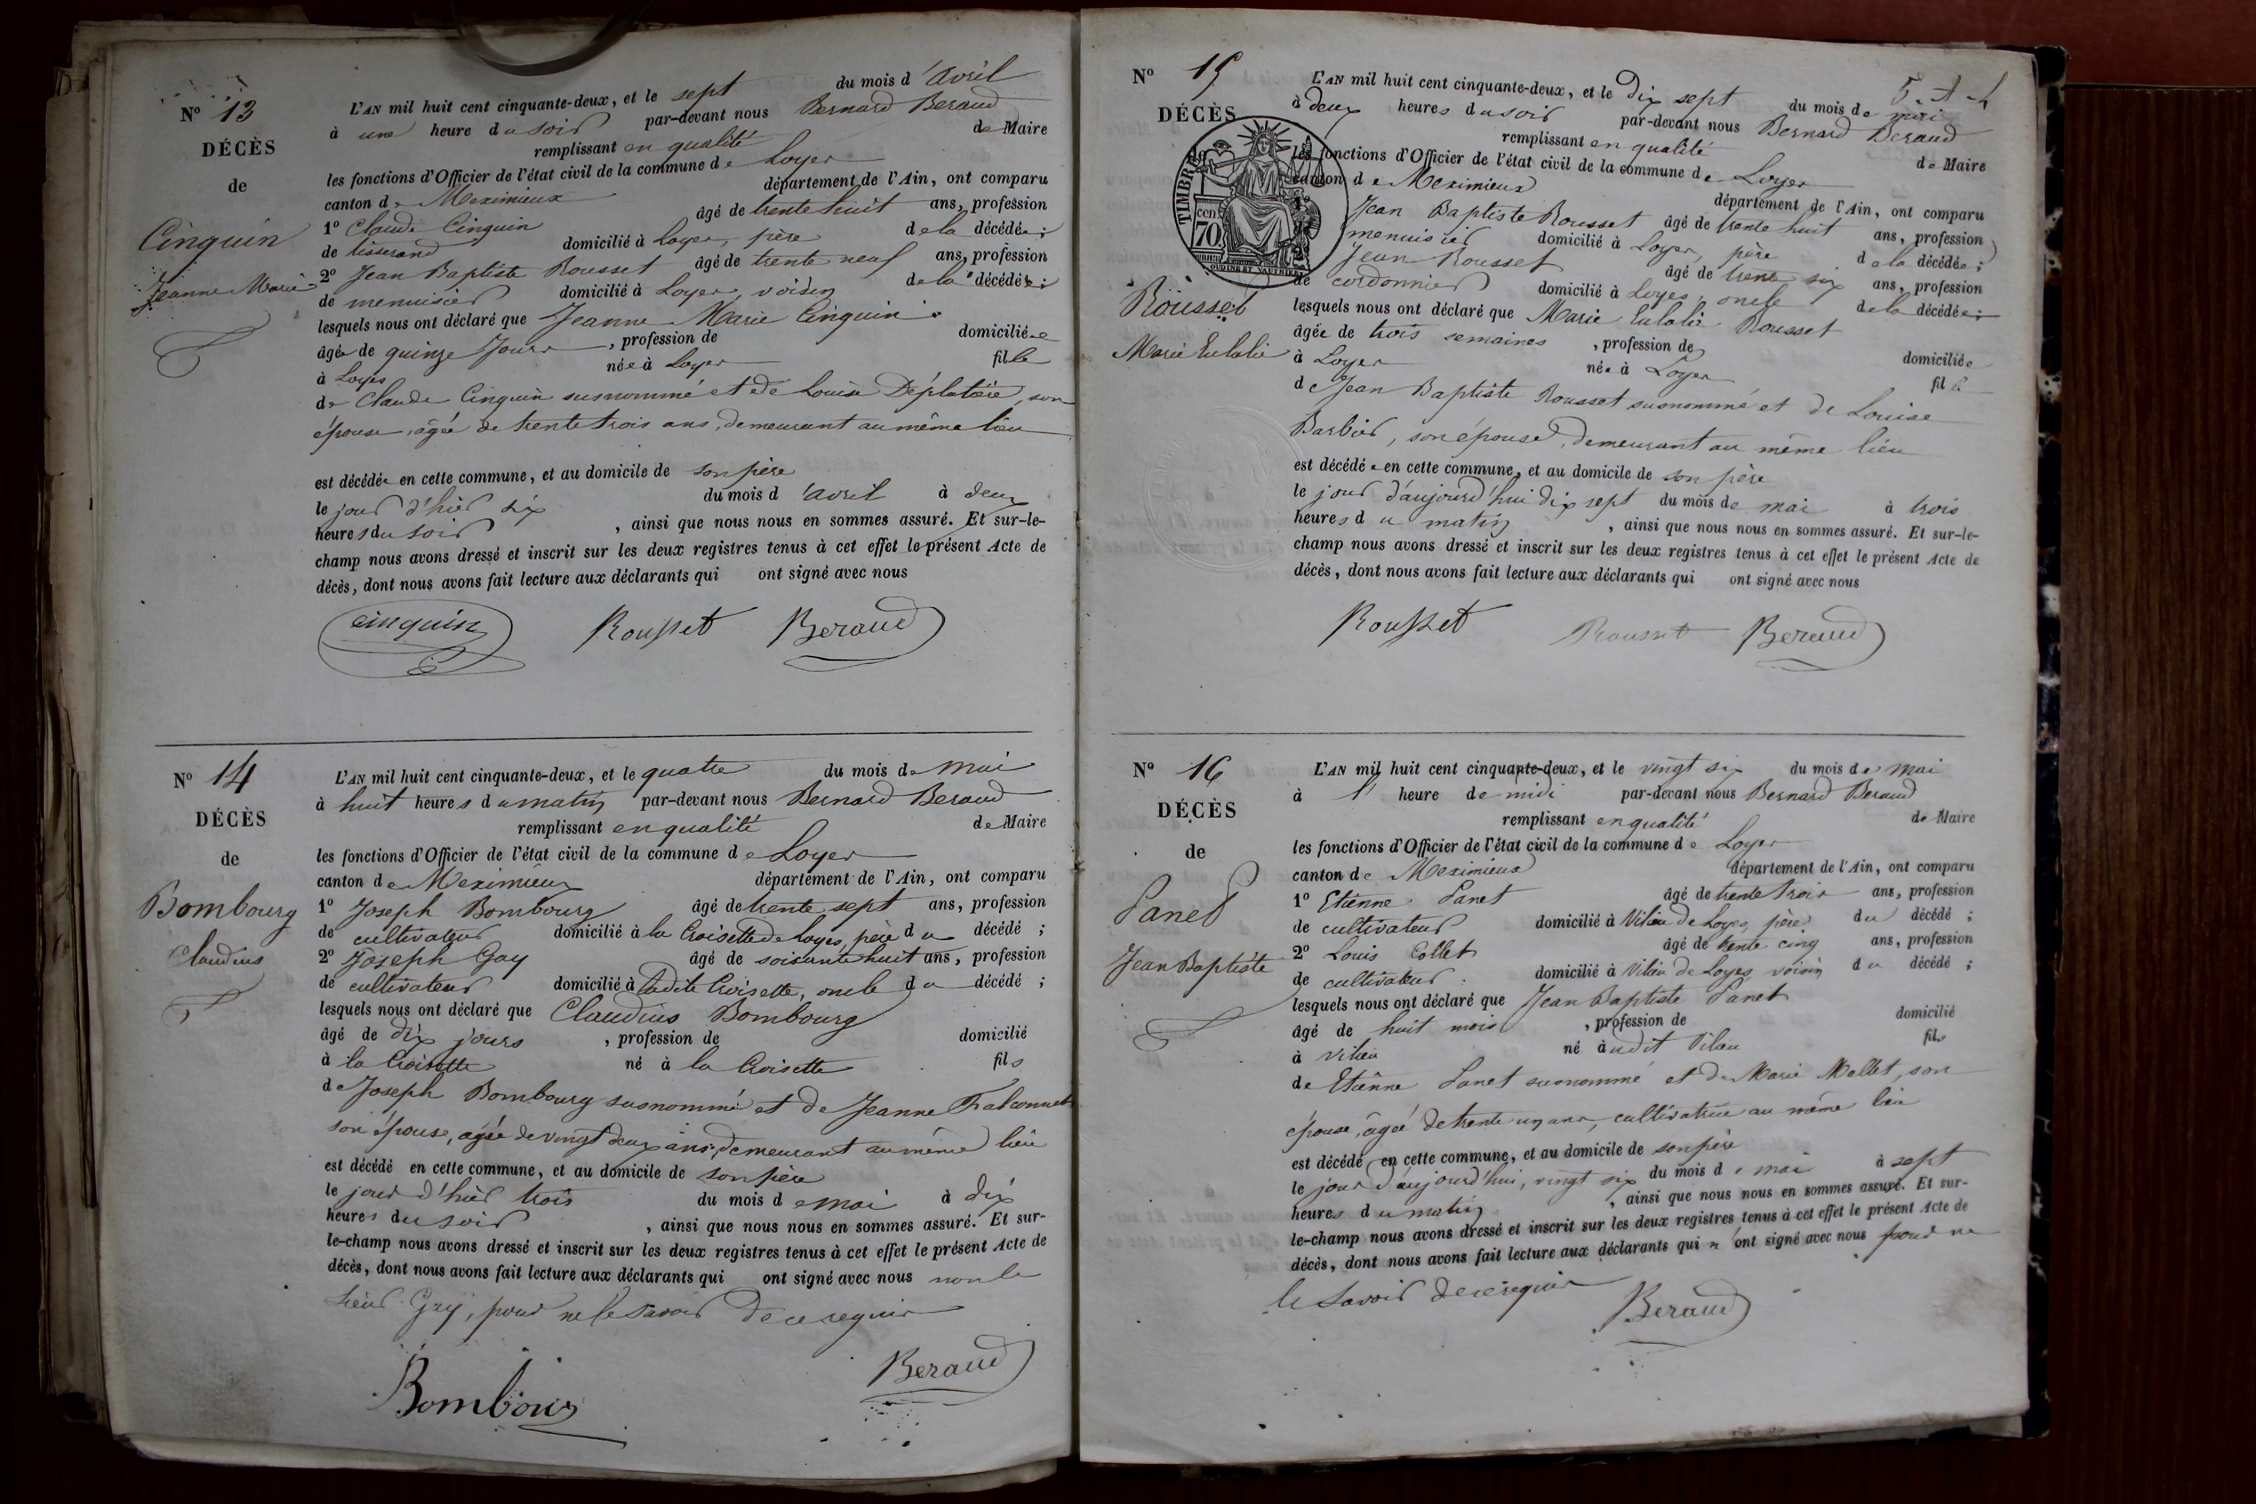 N° 13
DÉCÈS
de
Cinquin
Jeanne Marie
L'AN mil huit cent cinquante-deux, et le sept du mois d'avril
à une heure du soir par-devant nous Bernard Beraud
remplissant en qualité de Maire
les fonctions d'Officier de l'état civil de la commune de Loyes
canton de Meximieux département de l'Ain, ont comparu
1° Claude Cinquin âgé de trente huit ans, profession
de tisserand domicilié à Loyes, père de la décédée;
2° Jean Baptiste Rousset âgé de trente neuf ans, profession
de menuisier domicilié à Loyes, voisin de la décédée;
lesquels nous ont déclaré que Jeanne Marie Cinquin
âgée de quinze jours, profession de domiciliée
à Loyes née à Loyes fille
de Claude Cinquin susnommé et de Louise Déplatière, son
épouse, âgée de trente trois ans, demeurant au même lieu
est décédée en cette commune, et au domicile de son père
le jour d'hier six du mois d'avril à deux
heures du soir, ainsi que nous nous en sommes assuré. Et sur-le-
champ nous avons dressé et inscrit sur les deux registres tenus à cet effet le présent Acte de
décès, dont nous avons fait lecture aux déclarants qui ont signé avec nous
cinquin Rousset Beraud
N° 14
DÉCÈS
de
Bombourg
Claudius
L'AN mil huit cent cinquante-deux, et le quatre du mois de mai
à huit heures du matin par-devant nous Bernard Beraud
remplissant en qualité de Maire
les fonctions d'Officier de l'état civil de la commune de Loyes
canton de Meximieux département de l'Ain, ont comparu
1° Joseph Bombourg âgé de trente sept ans, profession
de cultivateur domicilié à la Croisette de Loyes, père du décédé;
2° Joseph Gay âgé de soixante huit ans, profession
de cultivateur domicilié à ladite Croisette, oncle du décédé;
lesquels nous ont déclaré que Claudius Bombourg
âgé de dix jours, profession de domicilié
à la Croisette né à la Croisette fils
de Joseph Bombourg susnommé et de Jeanne Falconnet
son épouse, âgée de vingt deux ans, demeurant au même lieu
est décédé en cette commune, et au domicile de son père
le jour d'hier trois du mois de mai à dix
heures du soir, ainsi que nous nous en sommes assuré. Et sur-
le-champ nous avons dressé et inscrit sur les deux registres tenus à cet effet le présent Acte de
décès, dont nous avons fait lecture aux déclarants qui ont signé avec nous non le
sieur Gay, pour ne le savoir de ce requis
Bombourg Beraud
N° 15
DÉCÈS
TIMBRE
70 cen
Rousset
Marie Eulalie
L'AN mil huit cent cinquante-deux, et le dix sept du mois de mai
à deux heures du soir par-devant nous Bernard Beraud
remplissant en qualité de Maire
les fonctions d'Officier de l'état civil de la commune de Loyes
canton de Meximieux département de l'Ain, ont comparu
Jean Baptiste Rousset âgé de trente huit ans, profession
menuisier domicilié à Loyes, père de la décédée;
Jean Rousset âgé de trente six ans, profession
de cordonnier domicilié à Loyes, oncle de la décédée;
lesquels nous ont déclaré que Marie Eulalie Rousset
âgée de trois semaines, profession de domiciliée
à Loyes née à Loyes fille
de Jean Baptiste Rousset susnommé et de Louise
Barbier, son épouse, demeurant au même lieu
est décédée en cette commune, et au domicile de son père
le jour d'aujourd'hui dix sept du mois de mai à trois
heures du matin, ainsi que nous nous en sommes assuré. Et sur-le-
champ nous avons dressé et inscrit sur les deux registres tenus à cet effet le présent Acte de
décès, dont nous avons fait lecture aux déclarants qui ont signé avec nous
Rousset Rousset Beraud
N° 16
DÉCÈS
de
Panet
Jean Baptiste
L'AN mil huit cent cinquante-deux, et le vingt six du mois de mai
à l' heure de midi par-devant nous Bernard Beraud
remplissant en qualité de Maire
les fonctions d'Officier de l'état civil de la commune de Loyes
canton de Meximieux département de l'Ain, ont comparu
1° Etienne Panet âgé de trente trois ans, profession
de cultivateur domicilié à Vilieu de Loyes, père du décédé;
2° Louis Collet âgé de trente cinq ans, profession
de cultivateur domicilié à Vilieu de Loyes voisin du décédé;
lesquels nous ont déclaré que Jean Baptiste Panet
âgé de huit mois, profession de domicilié
à Vilieu né audit Vilieu fils
de Etienne Panet susnommé et de Marie Mollet, son
épouse, âgée de trente un ans, cultivatrice au même lieu
est décédé en cette commune, et au domicile de son père
le jour d'aujourd'hui, vingt six du mois de mai à sept
heures du matin, ainsi que nous nous en sommes assuré. Et sur-
le-champ nous avons dressé et inscrit sur les deux registres tenus à cet effet le présent Acte de
décès, dont nous avons fait lecture aux déclarants qui n'ont signé avec nous pour ne
le savoir de ce requis
Beraud